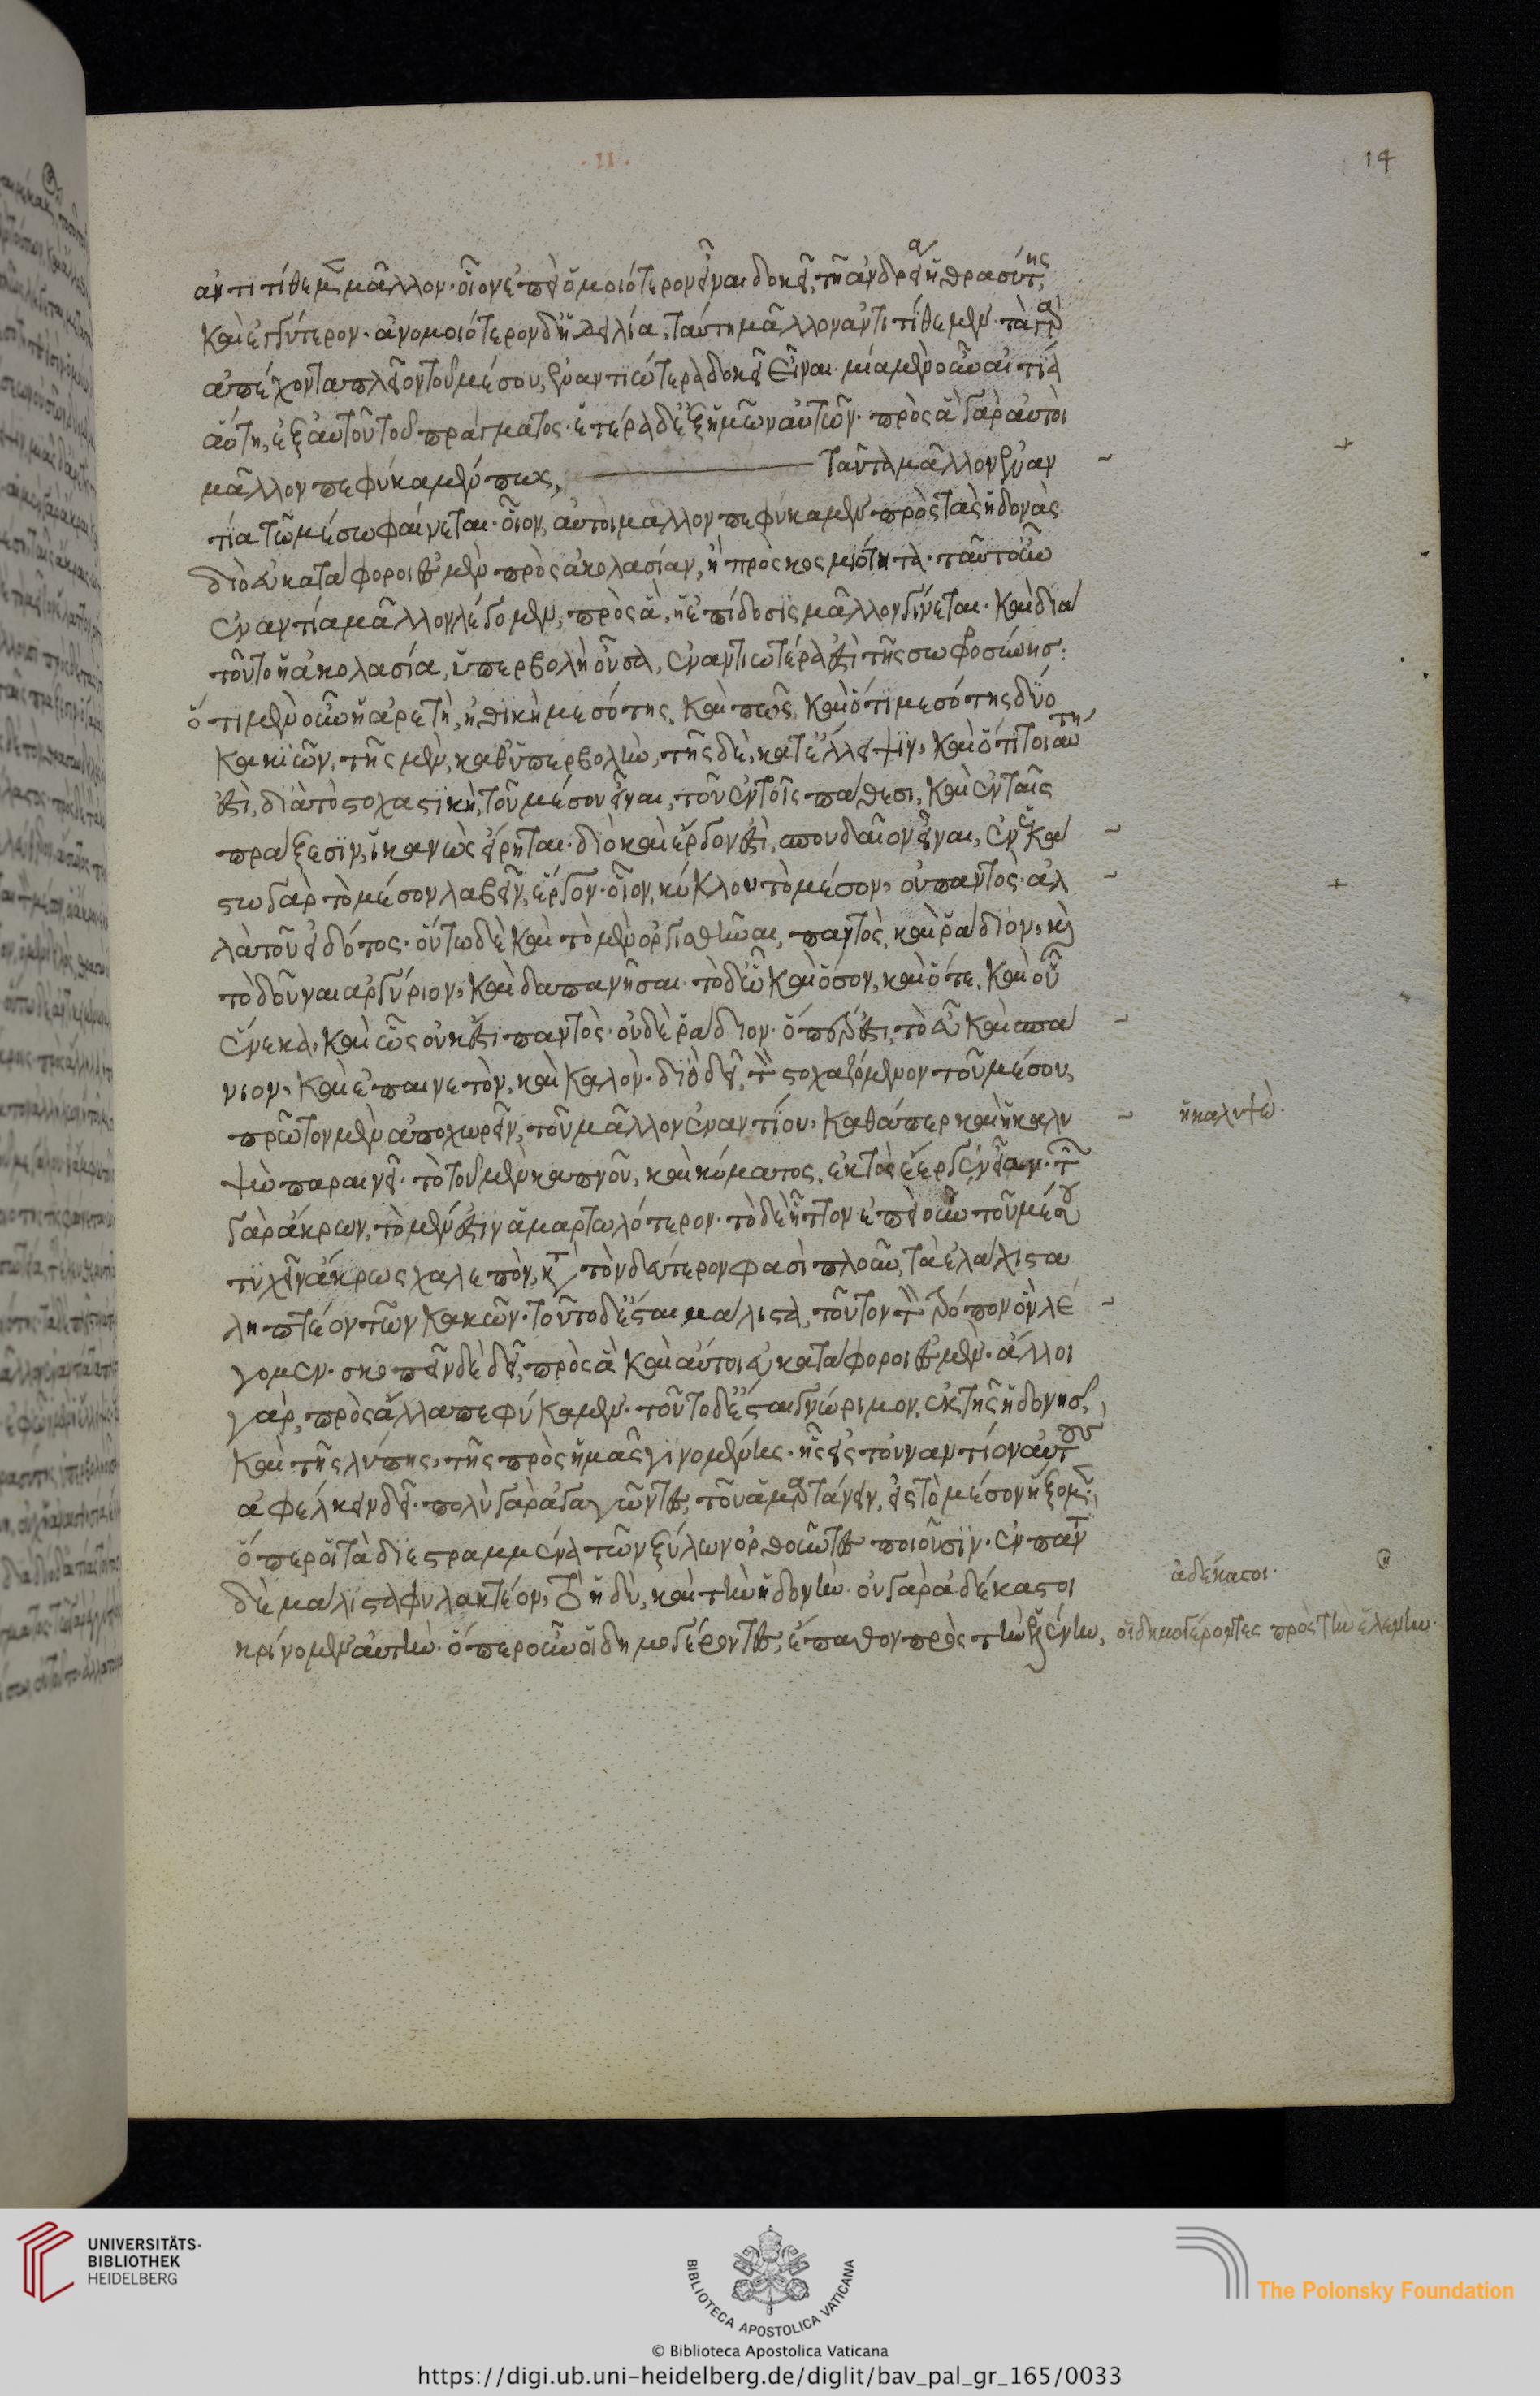 · II ·
14
ἀντιτίθεμεν μᾶλλον· οἷον ἐπεὶ ὁμοιότερον εἶναι δοκεῖ, τῇ ἀνδρείᾳ ἡ θρασύτης,
καὶ ἐγγύτερον· ἀνομοιότερον δ' ἡ δειλία, ταύτην μᾶλλον ἀντιτίθεμεν· τὰ γὰρ
ἀπέχοντα πλεῖον τοῦ μέσου, ἐναντιώτερα δοκεῖ εἶναι· μία μὲν οὖν αἰτία
αὕτη, ἐξ αὐτοῦ τοῦ πράγματος· ἑτέρα δὲ ἐξ ἡμῶν αὐτῶν· πρὸς ἃ γὰρ αὐτοὶ
μᾶλλον πεφύκαμέν πως, ταῦτα μᾶλλον ἐναν
τία τῷ μέσῳ φαίνεται· οἷον, αὐτοὶ μᾶλλον πεφύκαμεν πρὸς τὰς ἡδονὰς
διὸ εὐκατάφοροι ἐσμὲν πρὸς ἀκολασίαν, ἢ πρὸς κοσμιότητα· ταῦτ' οὖν
ἐναντία μᾶλλον λέγομεν, πρὸς ἃ, ἡ ἐπίδοσις μᾶλλον γίνεται· καὶ διὰ
τοῦτο ἡ ἀκολασία, ὑπερβολὴ οὖσα, ἐναντιωτέρα ἐστὶ τῆς σωφροσύνης:
ὅτι μὲν οὖν ἡ ἀρετὴ, ἡ ἠθικὴ μεσότης, καὶ πῶς, καὶ ὅτι μεσότης δύο
κακιῶν, τῆς μὲν, καθ' ὑπερβολὴν, τῆς δὲ, κατ' ἔλλειψιν, καὶ ὅτι τοιαύτη
ἐστὶ, διὰ τὸ στοχαστικὴ, τοῦ μέσου εἶναι, τοῦ ἐν τοῖς πάθεσι, καὶ ἐν ταῖς
πράξεσιν, ἱκανῶς εἴρηται· διὸ καὶ ἔργον ἐστὶ, σπουδαῖον εἶναι, ἐν ἑκά
στῳ γὰρ τὸ μέσον λαβεῖν, ἔργον· οἷον, κύκλου τὸ μέσον, οὐ παντὸς· ἀλ
λὰ τοῦ εἰδότος· οὕτω δὲ καὶ τὸ μὲν ὀργισθῆναι, παντὸς, καὶ ῥᾴδιον, καὶ
τὸ δοῦναι ἀργύριον, καὶ δαπανῆσαι· τὸ δ' ᾧ καὶ ὅσον, καὶ ὅτε, καὶ οὗ
ἕνεκα, καὶ ὡς οὐκέτι παντὸς· οὐδὲ ῥᾴδιον· ὅπερ ἐστι, τὸ εὖ καὶ σπά
νιον, καὶ ἐπαινετὸν, καὶ καλὸν· διὸ δεῖ, τὸν στοχαζόμενον τοῦ μέσου,
πρῶτον μὲν ἀποχωρεῖν, τοῦ μᾶλλον ἐναντίου, καθάπερ καὶ ἡ καλυ
ψὼ παραινεῖ· τὸ τοῦ μὲν καπνοῦ, καὶ κύματος, ἐκτὸς ἔεργε νῆα· τῶν
γὰρ ἄκρων, τὸ μέν ἐστιν ἁμαρτωλότερον· τὸ δὲ ἧττον· ἐπεὶ οὖν τοῦ μέσου
τυχεῖν ἄκρως χαλεπὸν, κατὰ τὸν δεύτερον φασὶ πλοῦν, τὰ ἐλάχιστα
ληπτέον τῶν κακῶν· τοῦτο δὲ ἔσται μάλιστα, τοῦτον τὸν τρόπον ὃν λέ
γομεν· σκοπεῖν δὲ δεῖ, πρὸς ἃ καὶ αὐτοὶ εὐκατάφοροι ἐσμὲν· ἄλλοι
γὰρ, πρὸς ἄλλα πεφύκαμεν· τοῦτο δὲ ἔσται γνώριμον, ἐκ τῆς ἡδονῆς,
καὶ τῆς λύπης, τῆς πρὸς ἡμᾶς γινομένης· ἧς εἰς τοὐναντίον αὐτοὺς
ἀφέλκειν δεῖ· πολὺ γὰρ ἀπαγαγόντες, τοῦ ἁμαρτάνειν, εἰς τὸ μέσον ἥξομεν·
ὅπερ οἱ τὰ διεστραμμένα τῶν ξύλων ὀρθοῦντες ποιοῦσιν· ἐν παντὶ
δὲ μάλιστα φυλακτέον, τὸ ἡδὺ, καὶ τὴν ἡδονὴν· οὐ γὰρ ἀδέκαστοι
κρίνομεν αὐτὴν· ὅπερ οὖν οἱ δημογέροντες, ἔπαθον πρὸς τὴν ἑλένην,
ἡ καλυψώ.
ἀδέκαστοι.
οἱ δημογέροντες πρὸς τὴν ἑλένην.
UNIVERSITÄTS-
BIBLIOTHEK
HEIDELBERG
BIBLIOTECA APOSTOLICA VATICANA
The Polonsky Foundation
© Biblioteca Apostolica Vaticana
https://digi.ub.uni-heidelberg.de/diglit/bav_pal_gr_165/0033